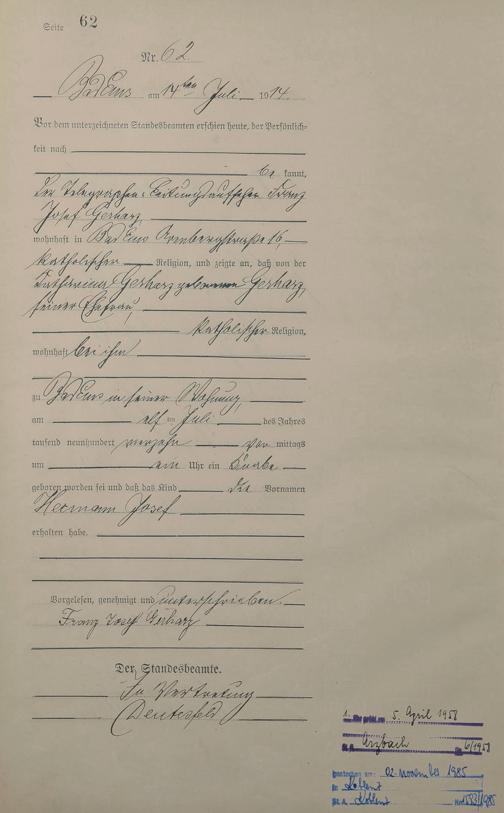 Seite 62
Nr. 62.
Bad Ems am 14ten Juli 1914.
Vor dem unterzeichneten Standesbeamten erschien heute, der Persönlich-
keit nach
be kannt,
der Telegraphen-Leitungsaufseher Franz
Josef Gerharz,
wohnhaft in Bad Ems Arenbergstraße 16
katholischer Religion, und zeigte an, daß von der
Katharina Gerharz geborenen Gerharz,
seiner Ehefrau,
katholischer Religion,
wohnhaft bei ihm
zu Bad Ems in seiner Wohnung,
am elften Juli des Jahres
tausend neunhundert vierzehn vor mittags
um ein Uhr ein Knabe
geboren worden sei und daß das Kind die Vornamen
Hermann Josef
erhalten habe.
Vorgelesen, genehmigt und unterschrieben.
Franz Josef Gerharz
Der Standesbeamte.
In Vertretung
1. 5. April 1951
Arzbach 6/1951
02. November 1985
in Koblenz
St.A. Koblenz Nr. 1583/1985